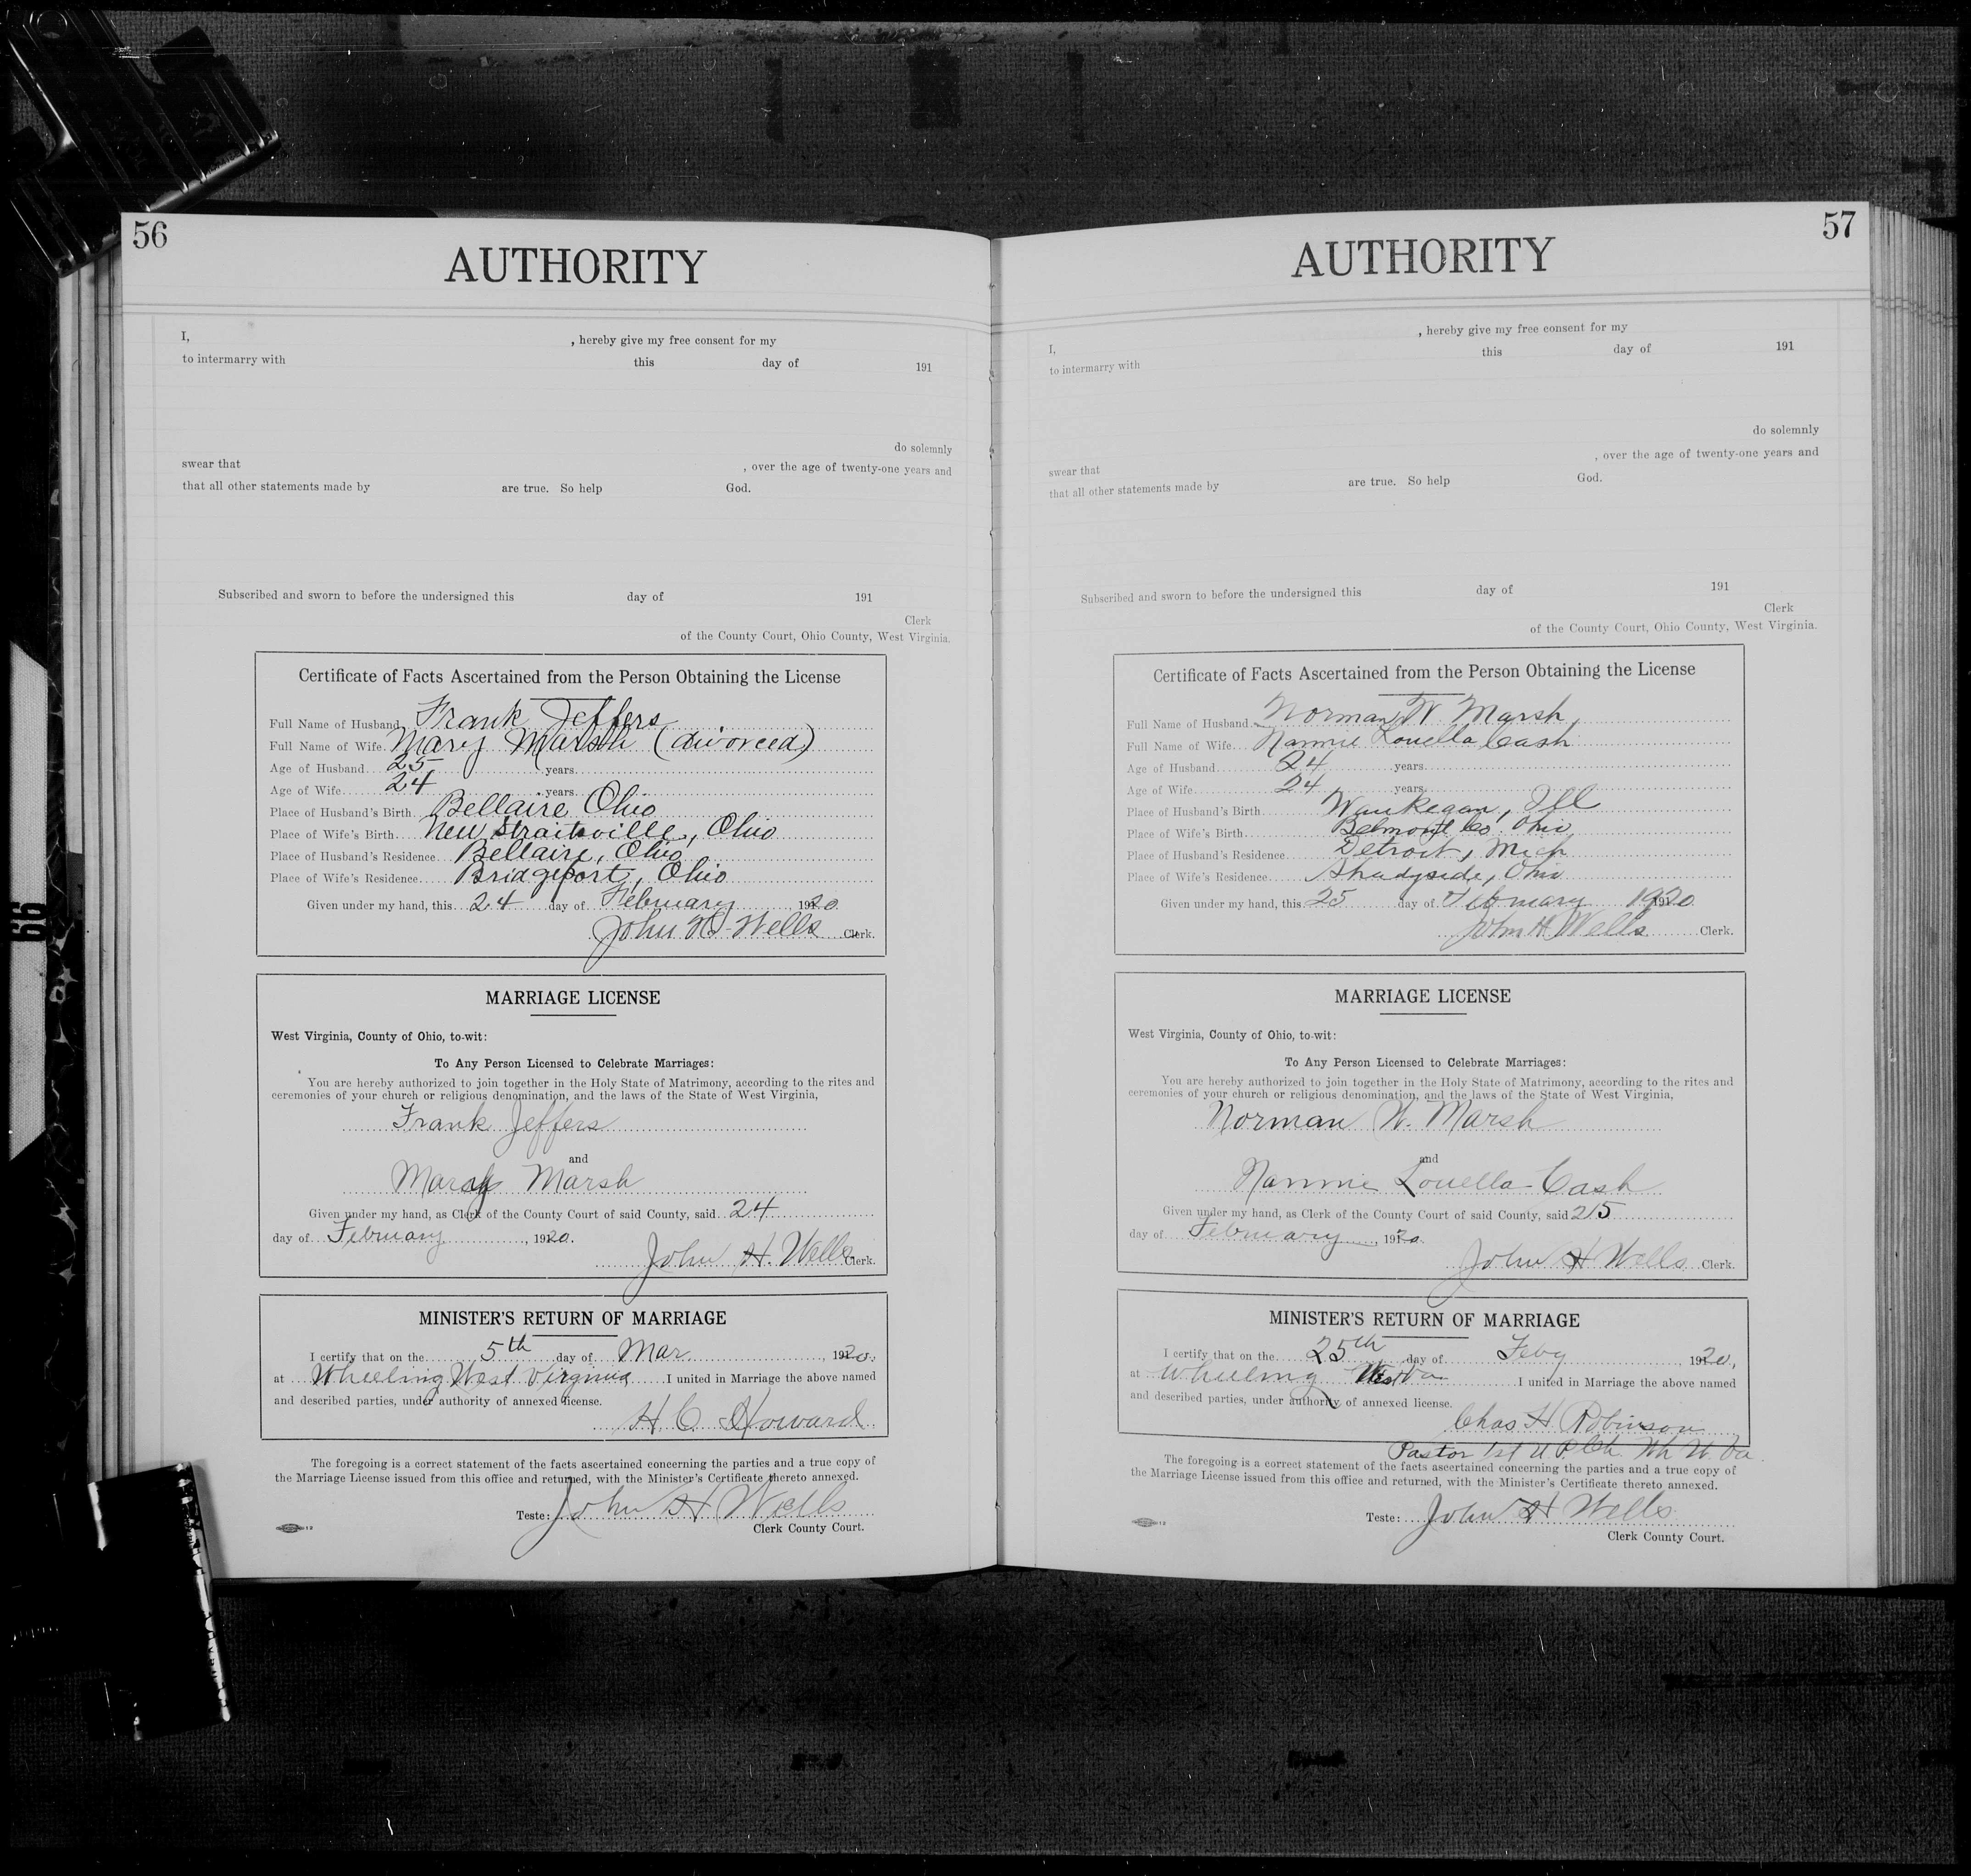 56
AUTHORITY
I, , hereby give my free consent for my
to intermarry with this day of 191
do solemnly
swear that , over the age of twenty-one years and
that all other statements made by are true. So help God.
Subscribed and sworn to before the undersigned this day of 191
Clerk
of the County Court, Ohio County, West Virginia.
Certificate of Facts Ascertained from the Person Obtaining the License
Full Name of Husband Frank Jeffers
Full Name of Wife Mary Marsh (divorced)
Age of Husband 25 years
Age of Wife 24 years
Place of Husband's Birth Bellaire Ohio
Place of Wife's Birth New Straitsville, Ohio
Place of Husband's Residence Bellaire, Ohio
Place of Wife's Residence Bridgeport, Ohio
Given under my hand, this 24 day of February 1920
John H Wells Clerk.
MARRIAGE LICENSE
West Virginia, County of Ohio, to-wit:
To Any Person Licensed to Celebrate Marriages:
You are hereby authorized to join together in the Holy State of Matrimony, according to the rites and
ceremonies of your church or religious denomination, and the laws of the State of West Virginia,
Frank Jeffers
and
Mary Marsh
Given under my hand, as Clerk of the County Court of said County, said 24
day of February, 1920.
John H. Wells Clerk.
MINISTER'S RETURN OF MARRIAGE
I certify that on the 5th day of Mar, 1920,
at Wheeling West Virginia I united in Marriage the above named
and described parties, under authority of annexed license.
H. C. Howard
The foregoing is a correct statement of the facts ascertained concerning the parties and a true copy of
the Marriage License issued from this office and returned, with the Minister's Certificate thereto annexed.
Teste: John H Wells
Clerk County Court.
12
57
AUTHORITY
I, , hereby give my free consent for my
to intermarry with this day of 191
do solemnly
swear that , over the age of twenty-one years and
that all other statements made by are true. So help God.
Subscribed and sworn to before the undersigned this day of 191
Clerk
of the County Court, Ohio County, West Virginia.
Certificate of Facts Ascertained from the Person Obtaining the License
Full Name of Husband Norman W Marsh
Full Name of Wife Nannie Louella Cash
Age of Husband 24 years
Age of Wife 24 years
Place of Husband's Birth Waukegan, Ill
Place of Wife's Birth Belmont Co. Ohio
Place of Husband's Residence Detroit, Mich
Place of Wife's Residence Shadyside, Ohio
Given under my hand, this 25 day of February 1920
John H. Wells Clerk.
MARRIAGE LICENSE
West Virginia, County of Ohio, to-wit:
To Any Person Licensed to Celebrate Marriages:
You are hereby authorized to join together in the Holy State of Matrimony, according to the rites and
ceremonies of your church or religious denomination, and the laws of the State of West Virginia,
Norman W. Marsh
and
Nannie Louella Cash
Given under my hand, as Clerk of the County Court of said County, said 25
day of February, 1920.
John H Wells Clerk.
MINISTER'S RETURN OF MARRIAGE
I certify that on the 25th day of Feby, 1920,
at Wheeling West Va I united in Marriage the above named
and described parties, under authority of annexed license.
Chas H. Robinson
Pastor 1st U. P. Ch. Wh W. Va.
The foregoing is a correct statement of the facts ascertained concerning the parties and a true copy of
the Marriage License issued from this office and returned, with the Minister's Certificate thereto annexed.
Teste: John H Wells
Clerk County Court.
12